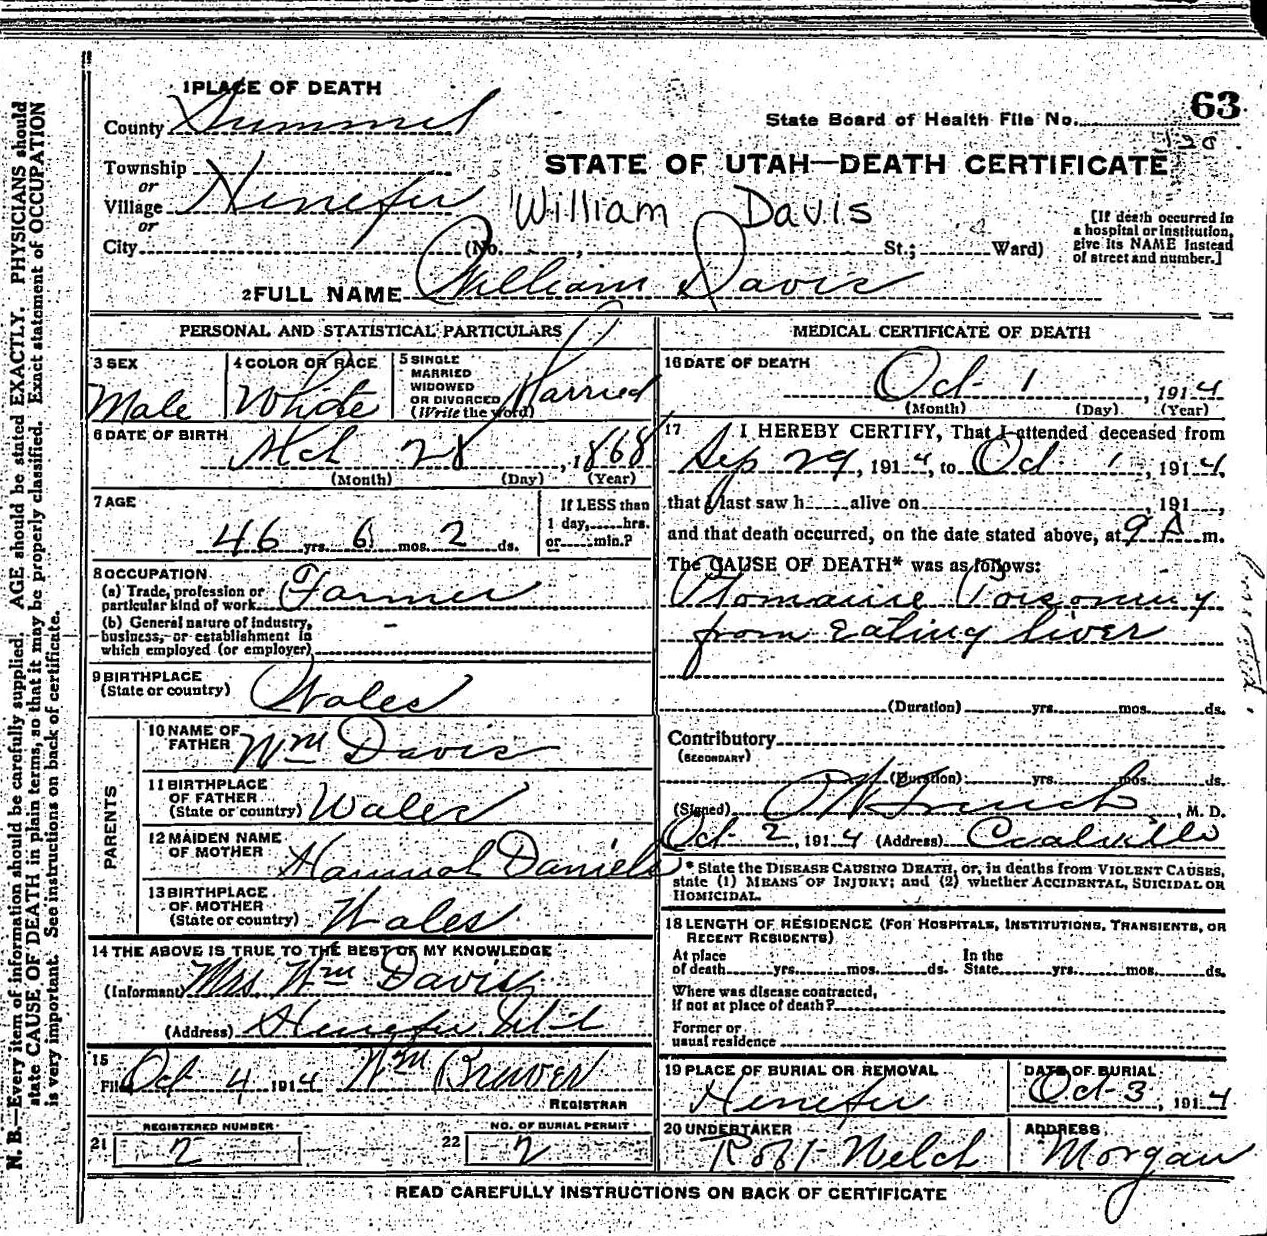 1 PLACE OF DEATH
County Summit
State Board of Health File No. 63
Township
or
Village Henefer
or
City (No. , St.; Ward)
STATE OF UTAH—DEATH CERTIFICATE
William Davis
[If death occurred in
a hospital or institution,
give its NAME instead
of street and number.]
2 FULL NAME William Davis
PERSONAL AND STATISTICAL PARTICULARS
3 SEX
Male
4 COLOR OR RACE
White
5 SINGLE
MARRIED
WIDOWED
OR DIVORCED
(Write the word)
Married
6 DATE OF BIRTH
Mch 28, 1868
(Month) (Day) (Year)
7 AGE
46 yrs. 6 mos. 2 ds.
If LESS than
1 day, hrs.
or min.?
8 OCCUPATION
(a) Trade, profession or
particular kind of work Farmer
(b) General nature of industry,
business, or establishment in
which employed (or employer)
9 BIRTHPLACE
(State or country)
Wales
PARENTS
10 NAME OF
FATHER Wm Davis
11 BIRTHPLACE
OF FATHER
(State or country) Wales
12 MAIDEN NAME
OF MOTHER Hannah Daniels
13 BIRTHPLACE
OF MOTHER
(State or country) Wales
14 THE ABOVE IS TRUE TO THE BEST OF MY KNOWLEDGE
(Informant) Mrs. Wm Davis
(Address) Henefer
15
Filed Oct 4 1914 Wm Brewer
REGISTRAR
REGISTERED NUMBER
21 2
NO. OF BURIAL PERMIT
22 2
MEDICAL CERTIFICATE OF DEATH
16 DATE OF DEATH
Oct 1, 1914
(Month) (Day) (Year)
17 I HEREBY CERTIFY, That I attended deceased from
Sep 29, 1914, to Oct 1, 1914,
that I last saw h alive on , 191 ,
and that death occurred, on the date stated above, at 9 A m.
The CAUSE OF DEATH* was as follows:
Ptomaine Poisoning
from eating liver
(Duration) yrs. mos. ds.
Contributory
(SECONDARY)
(Duration) yrs. mos. ds.
(Signed) French, M. D.
Oct 2, 1914 (Address) Coalville
* State the DISEASE CAUSING DEATH, or, in deaths from VIOLENT CAUSES,
state (1) MEANS OF INJURY; and (2) whether ACCIDENTAL, SUICIDAL OR
HOMICIDAL.
18 LENGTH OF RESIDENCE (FOR HOSPITALS, INSTITUTIONS, TRANSIENTS, OR
RECENT RESIDENTS)
At place
of death yrs. mos. ds.
In the
State yrs. mos. ds.
Where was disease contracted,
if not at place of death?
Former or
usual residence
19 PLACE OF BURIAL OR REMOVAL
Henefer
DATE OF BURIAL
Oct 3, 1914
20 UNDERTAKER
Robt Welch
ADDRESS
Morgan
READ CAREFULLY INSTRUCTIONS ON BACK OF CERTIFICATE
N. B.—Every item of information should be carefully supplied. AGE should be stated EXACTLY. PHYSICIANS should
state CAUSE OF DEATH in plain terms, so that it may be properly classified. Exact statement of OCCUPATION
is very important. See instructions on back of certificate.